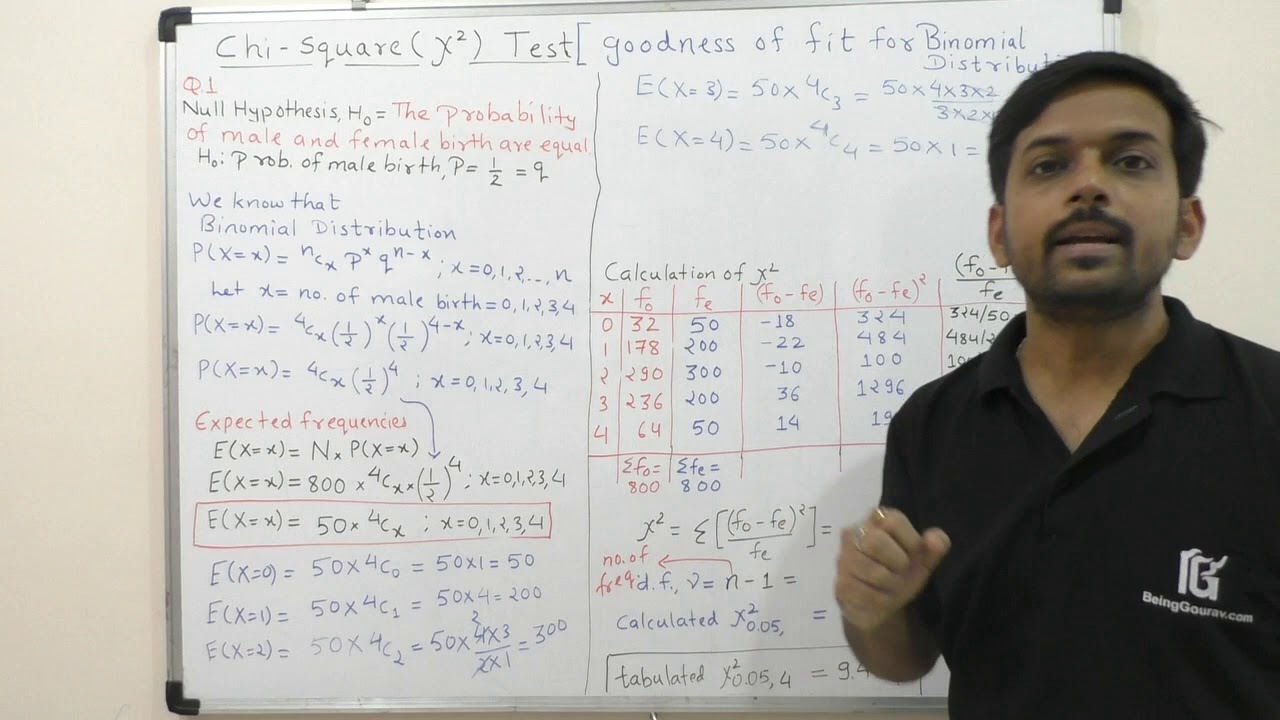 Chi-square (χ²) Test [ goodness of fit for Binomial
Distribut
Q.1
Null Hypothesis, H₀ = The Probability
of male and female birth are equal
H₀: Prob. of male birth, P = 1/2 = q
We know that
Binomial Distribution
P(X=x) = ⁿCₓ Pˣ qⁿ⁻ˣ ; x=0,1,2,..., n
Let x = no. of male birth = 0,1,2,3,4
P(X=x) = ⁴Cₓ (1/2)ˣ (1/2)⁴⁻ˣ ; x=0,1,2,3,4
P(X=x) = ⁴Cₓ (1/2)⁴ ; x=0,1,2,3,4
Expected frequencies
E(X=x) = N × P(X=x)
E(X=x) = 800 × ⁴Cₓ × (1/2)⁴ ; x=0,1,2,3,4
E(X=x) = 50 × ⁴Cₓ ; x=0,1,2,3,4
E(X=0) = 50 × ⁴C₀ = 50×1 = 50
E(X=1) = 50 × ⁴C₁ = 50×4 = 200
E(X=2) = 50 × ⁴C₂ = 50 × 4×3/2×1 = 300
E(X=3) = 50 × ⁴C₃ = 50 × 4×3×2/3×2×
E(X=4) = 50 × ⁴C₄ = 50×1 =
Calculation of χ²
x f₀ fₑ (f₀-fₑ) (f₀-fₑ)² (f₀-/fₑ
0 32 50 -18 324 324/50
1 178 200 -22 484 484/2
2 290 300 -10 100 10
3 236 200 36 1296
4 64 50 14 19
Σf₀= Σfₑ=
800 800
χ² = Σ[(f₀-fₑ)²/fₑ] =
no. of
freq d.f., ν = n-1 =
Calculated χ²0.05, =
tabulated χ²0.05, 4 = 9.4
BeingGourav.com